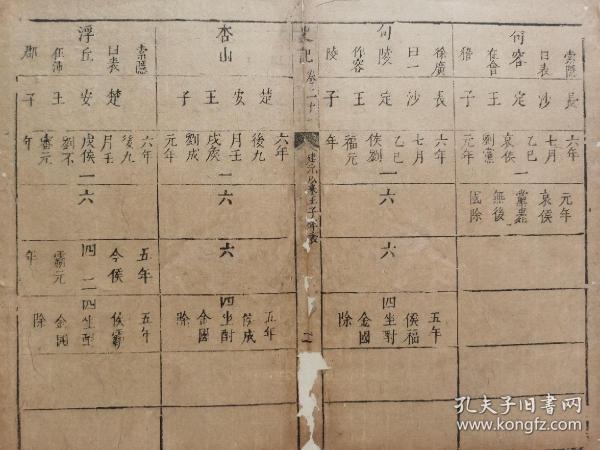 句容
索隱
曰表
在會
稽
長
沙
定
王
子
六年
七月
乙巳
哀侯
劉黨
元年
一
元年
哀侯
黨薨
無後
國除
句陵
徐廣
曰一
作容
陵
長
沙
定
王
子
六年
七月
乙巳
侯劉
福元
年
一
六
六
四
五年
侯福
坐酎
金國
除
史記
卷二十一
建元以來王子侯表
二
杏山
楚
安
王
子
六年
後九
月壬
戌侯
劉成
元年
一
六
六
四
五年
侯成
坐酎
金國
除
浮丘
索隱
曰表
在沛
郡
楚
安
王
子
六年
後九
月壬
戌侯
劉不
審元
年
一
六
四
二
五年
今侯
霸元
年
四
五年
侯霸
坐酎
金國
除
孔夫子旧书网
www.kongfz.com